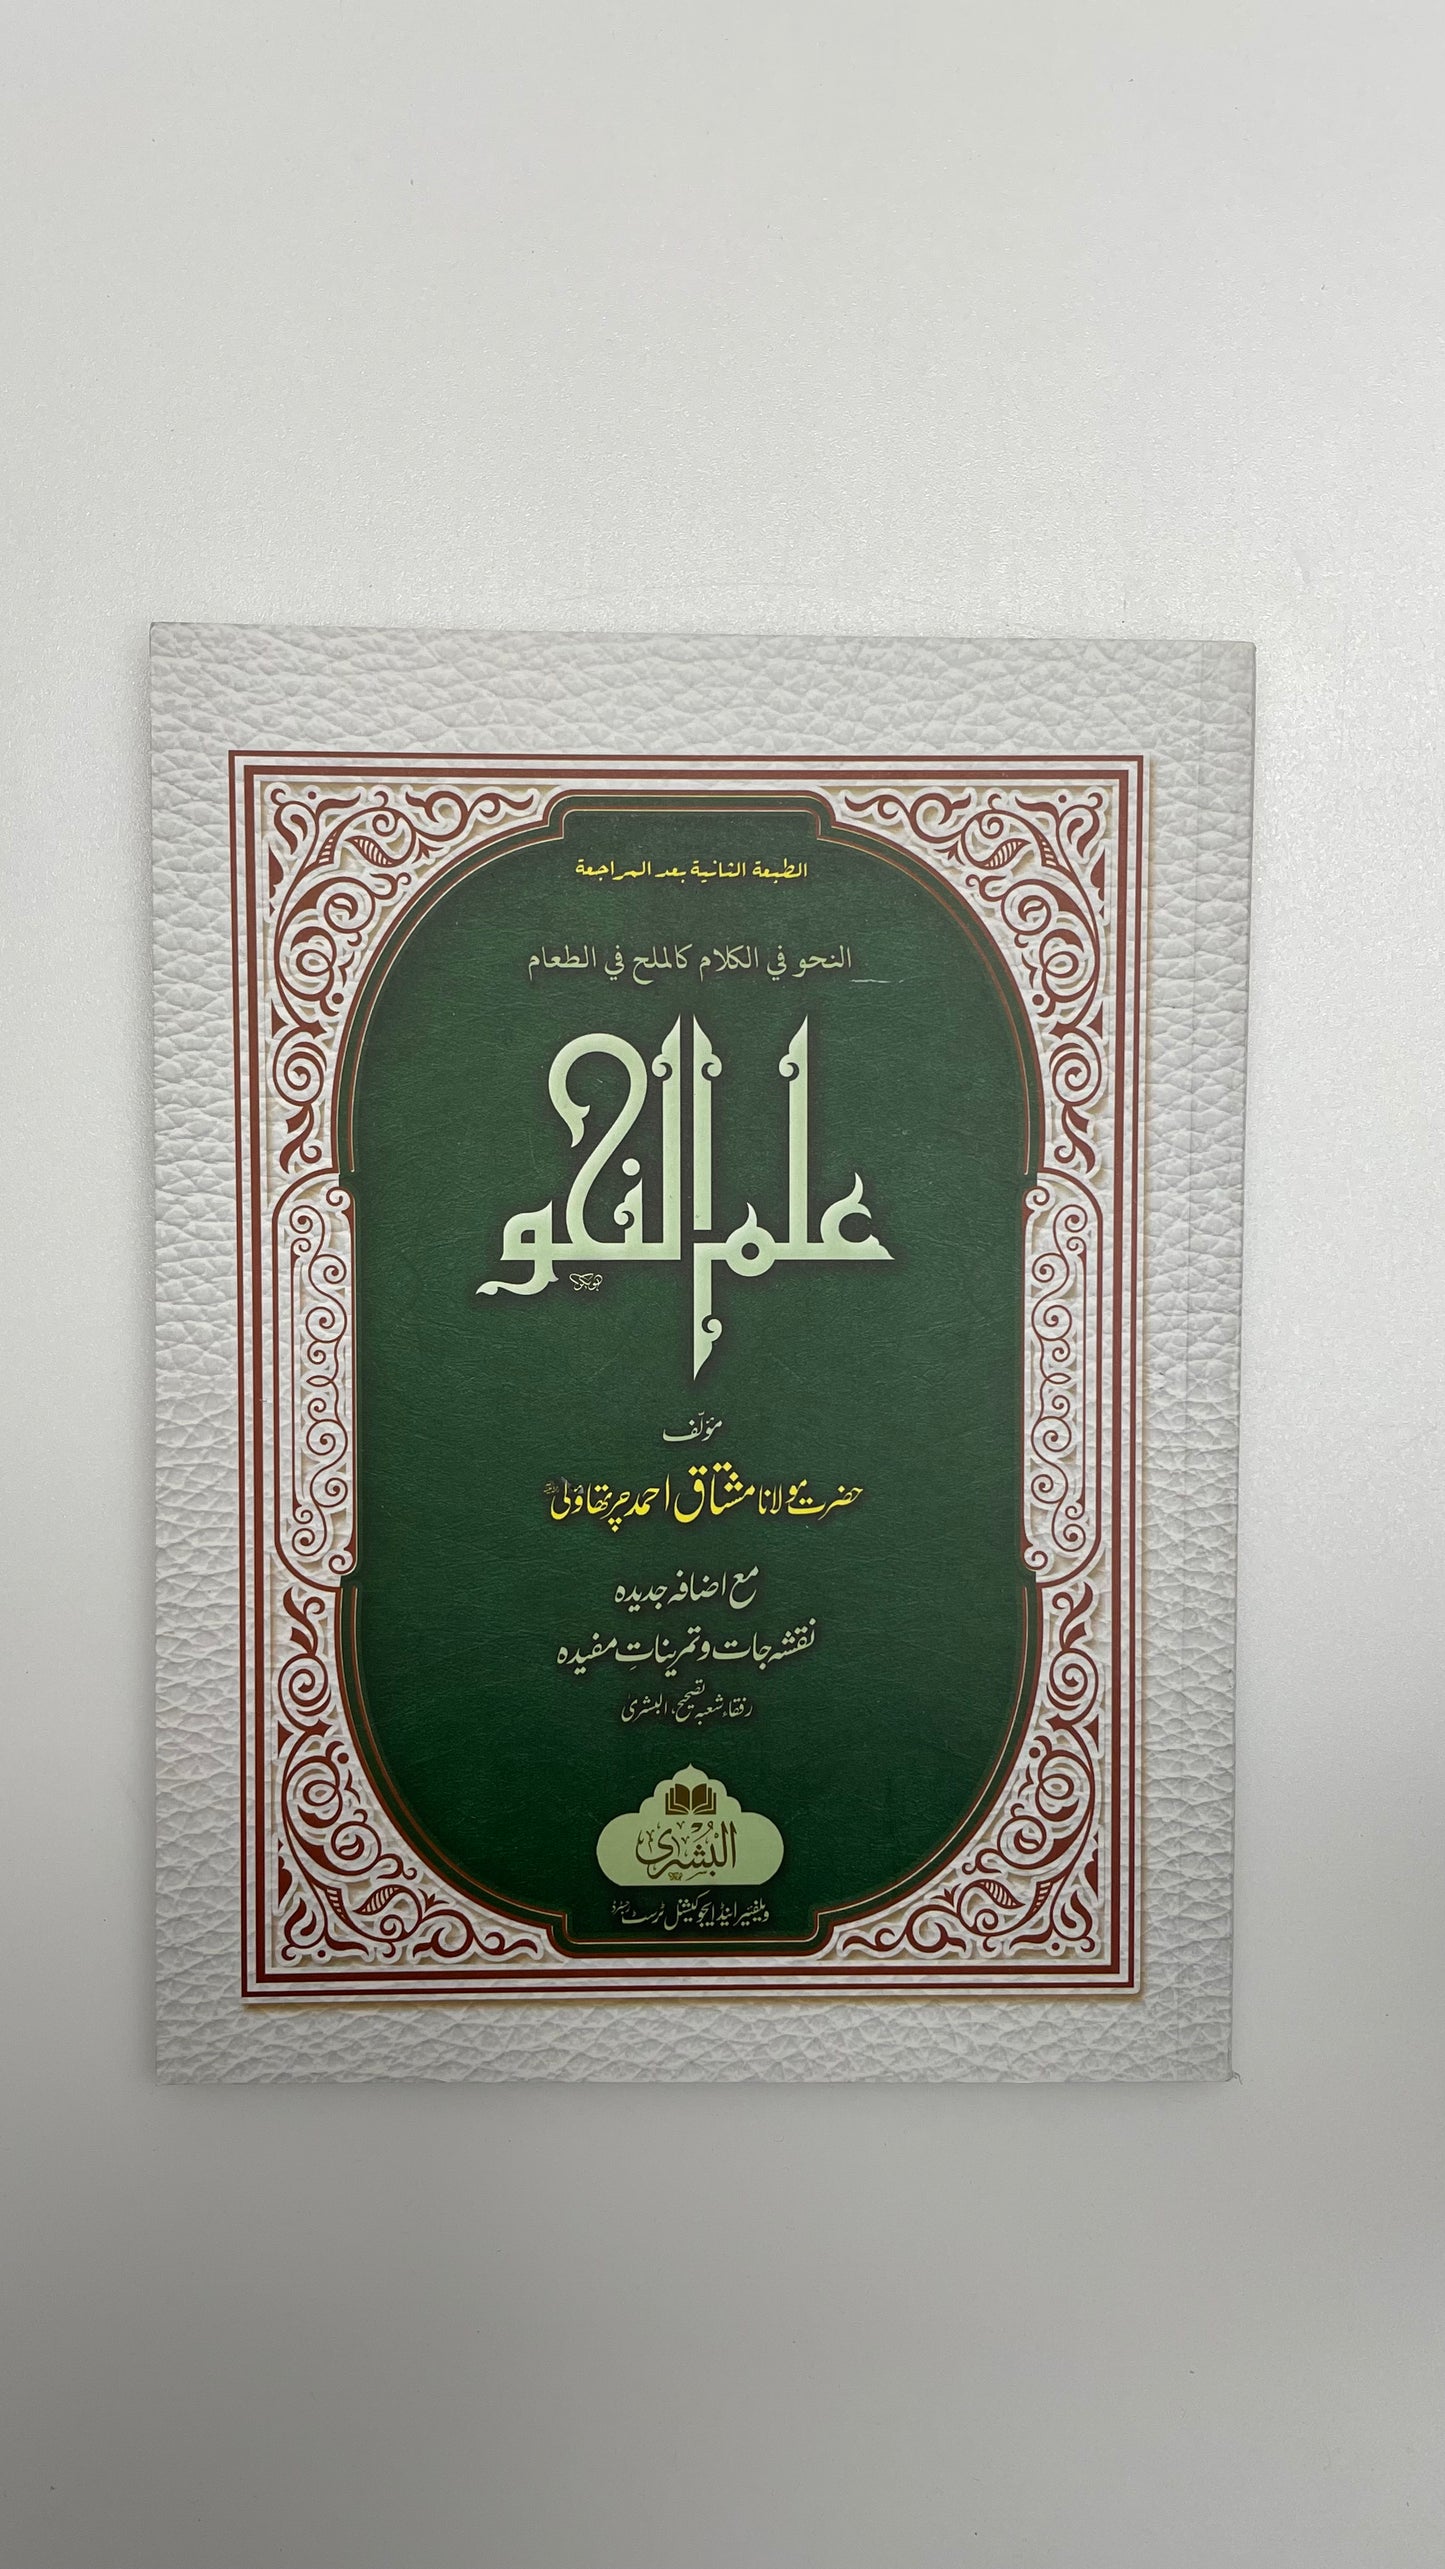 الطبعة الثانية بعد المراجعة
النحو في الكلام كالملح في الطعام
علم النحو
مؤلّف
حضرت مولانا مشتاق احمد چرتھاؤلی
مع اضافہ جدیدہ
نقشہ جات و تمریناتِ مفیدہ
رفقاء شعبہ تصحیح، البشریٰ
البُشرى
ویلفیئر اینڈ ایجوکیشنل ٹرسٹ رجسٹرڈ